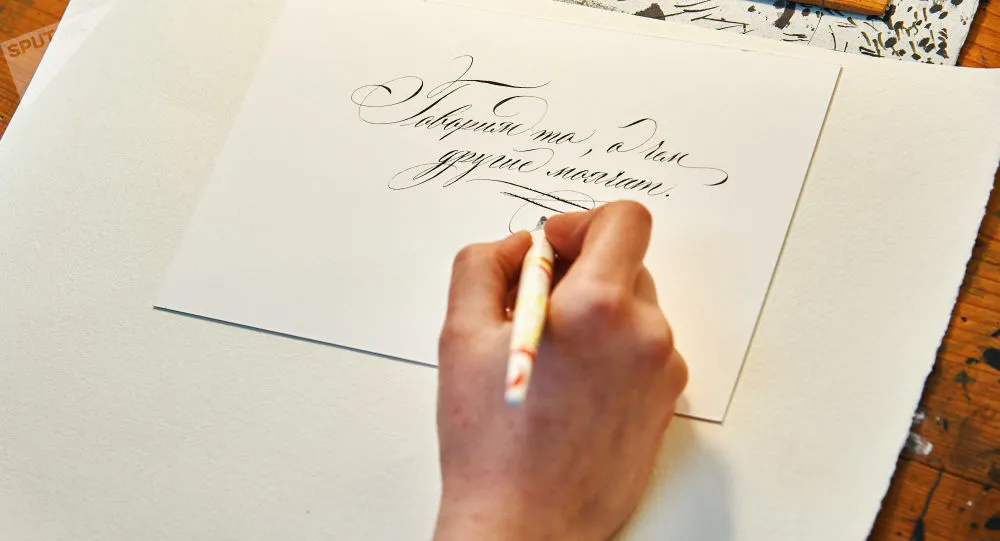 SPUT
Говорим то, о чем
другие молчат.